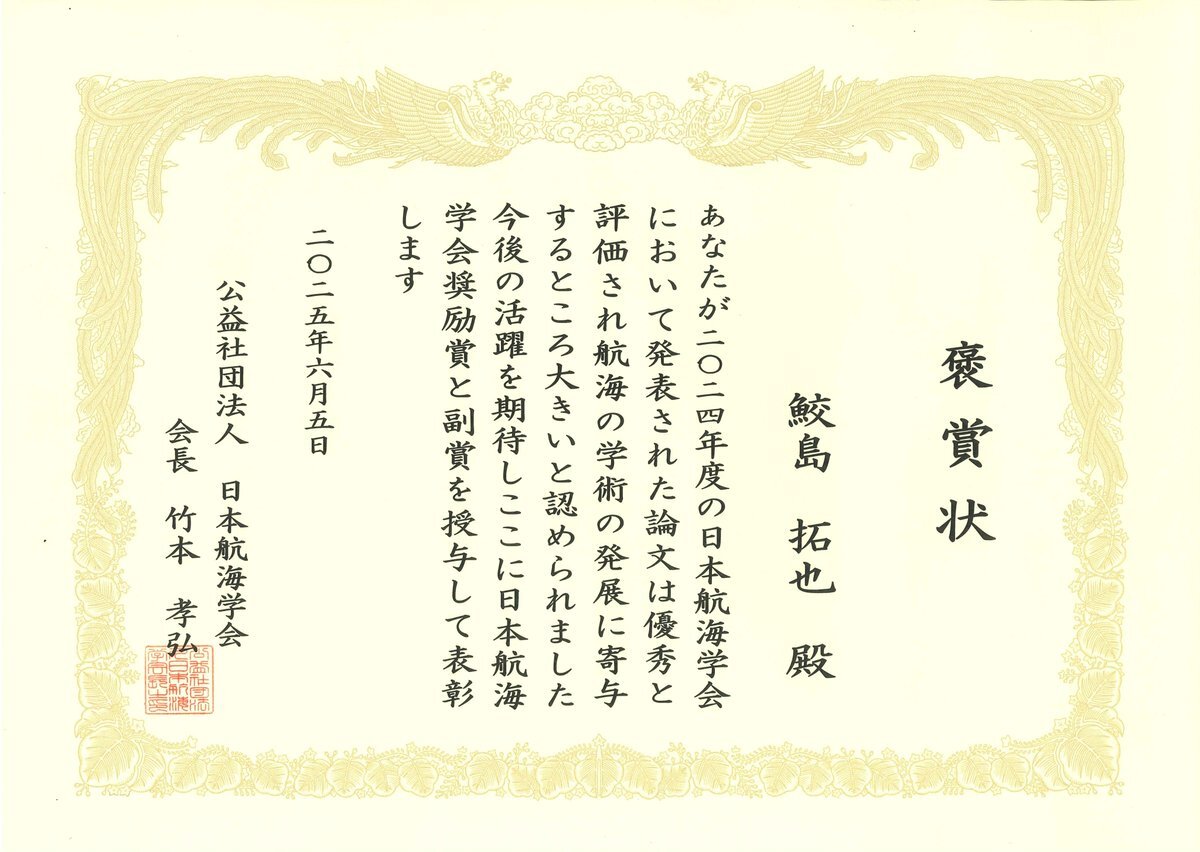 褒賞状
鮫島 拓也 殿
あなたが二〇二四年度の日本航海学会
において発表された論文は優秀と
評価され航海の学術の発展に寄与
するところ大きいと認められました
今後の活躍を期待しここに日本航海
学会奨励賞と副賞を授与して表彰
します
二〇二五年六月五日
公益社団法人 日本航海学会
会長 竹本 孝弘